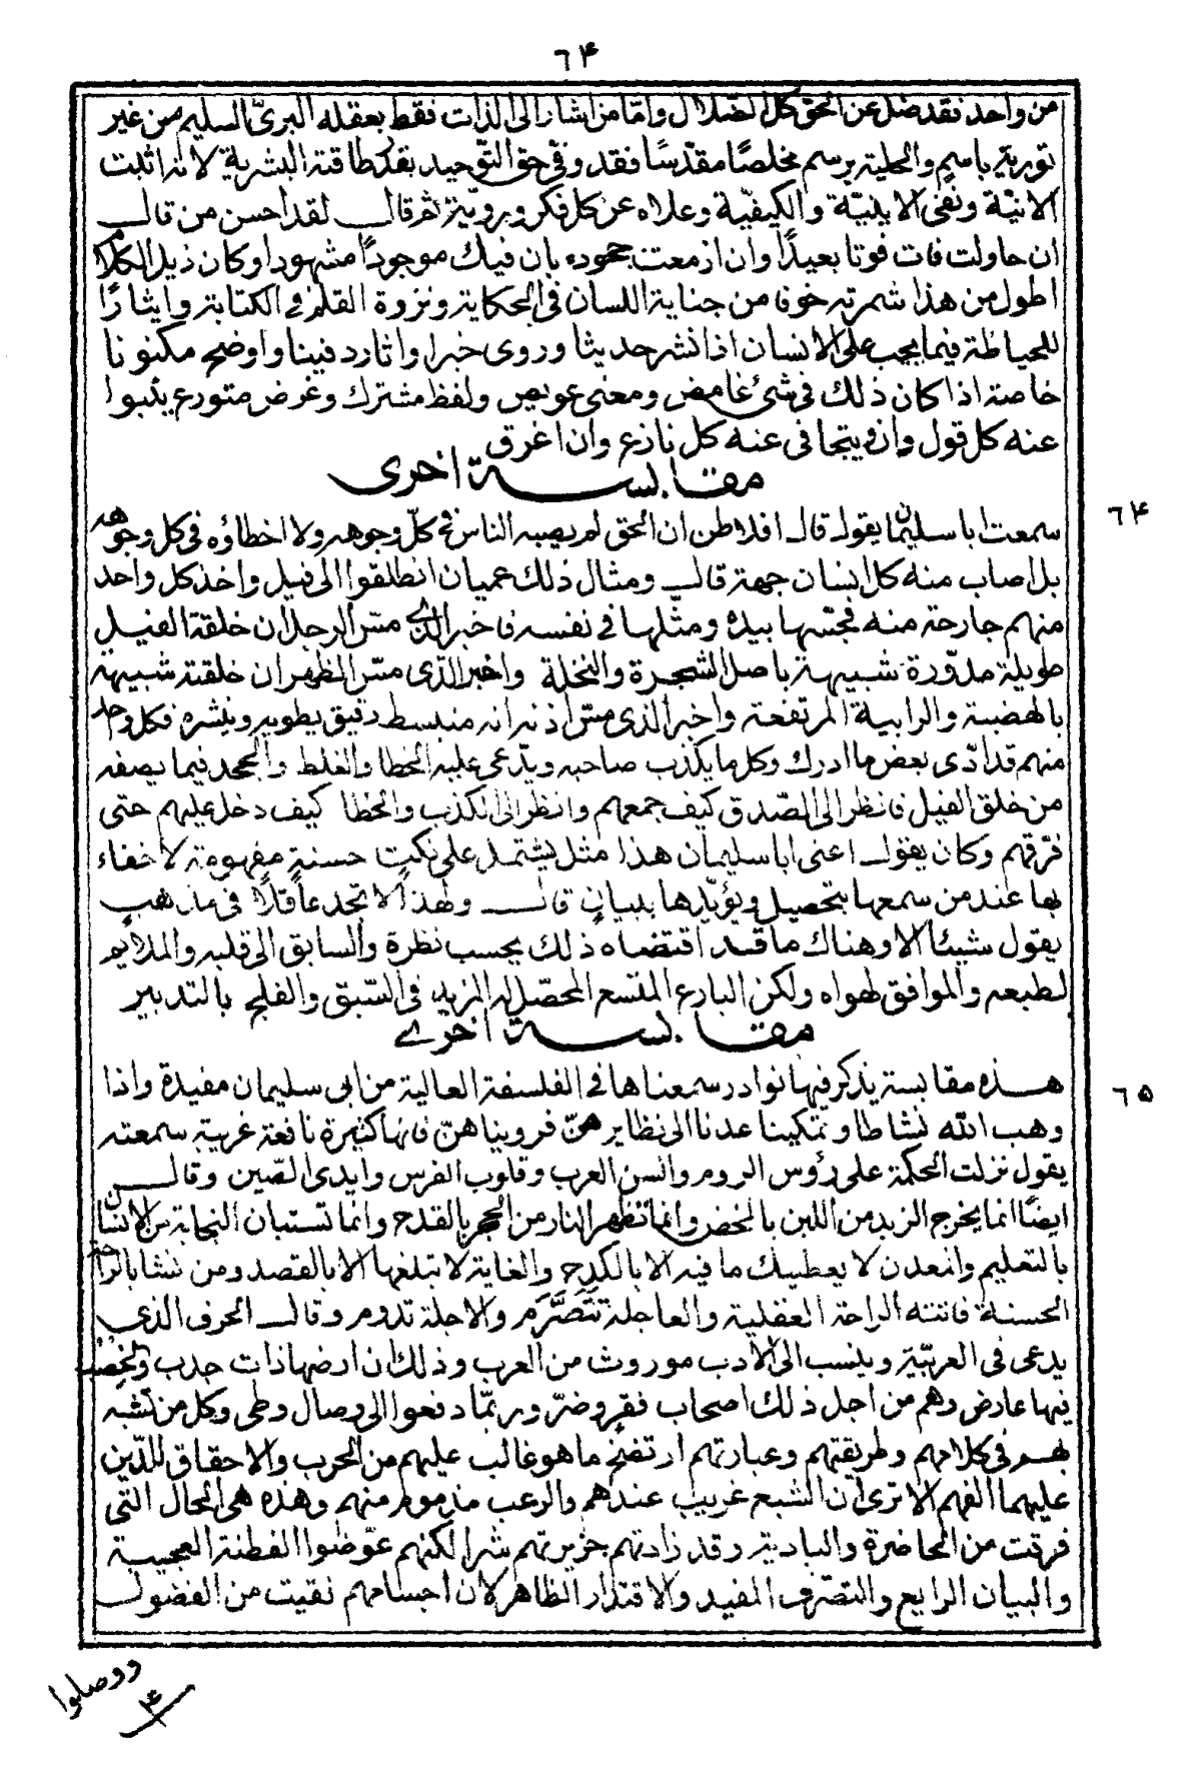 ٦۴
من واحد فقد ضل عن الحق كل الضلال واما من اشار الى الذات فقط بعقله البرىّ السليم من غير
تورية باسم والحلية برسم مخلصًا مقدّسًا فقد وفى حق التّوحيد بقدر طاقته البشرية لانه اثبت
الانيّة ونفى الاينيّة والكيفيّة وعلاه عن كل فكر ورويّة ثم قال لقد احسن من قال
ان حاولت فات فوتا بعيدًا وان ازمعت جحوده بان فيك موجودًا مشهودا وكان ذيل الكلام
اطول من هذا شمرته خوفا من جناية اللسان فى الحكاية ونزوة القلم فى الكتابة وايثارًا
للحياطة فيما يجب على الانسان اذا نشر حديثا وروى خبرا واثار دفينا واوضح مكنونا
خاصة اذا كان ذلك فى شئ غامض ومعنى عويص ولفظ مشترك وغرض متورع ينبوا
عنه كل قول وان ويتجافى عنه كل نازع وان اغرق
مقابسة اخرى
٦۴
سمعت ابا سليمان يقول قال افلاطن ان الحق لم يصبه الناس فى كلّ وجوهه ولا اخطاؤه فى كل وجوهه
بل اصاب منه كل انسان جهة قال ومثال ذلك عميان انطلقوا الى فيل واخذ كل واحد
منهم جارحة منه فجسّها بيده ومثّلها فى نفسه فاخبر الذى مسّ الرجل ان خلقة الفيل
طويلة مدوّرة شبيهة باصل الشجرة والنخلة واخبر الذى مسّ الظهر ان خلقته شبيهة
بالهضبة والرابية المرتفعة واخبر الذى مسّ اذنه انه منبسط دقيق يطويه وينشره فكل واحد
منهم قد ادّى بعض ما ادرك وكل ما يكذب صاحبه ويدّعى عليه الخطا والغلط والجحد فيما يصفه
من خلق الفيل فانظر الى الصّدق كيف جمعهم وانظر الى الكذب والخطا كيف دخل عليهم حتى
فرّقهم وكان يقول اعنى ابا سليمان هذا مثل يشتمل على نكتٍ حسنةٍ مفهومة لا خفاء
بها عند من سمعها بتحصيل ويؤيّدها ببيانٍ قال ولهذا لا تجد عاقلًا فى مذهبٍ
يقول شيئا الا وهناك ما قد اقتضاه ذلك بحسب نظره والسابق الى قلبه والملايم
لطبعه والموافق لهواه ولكن البارع المتسع المحصّل له المزيه فى السّبق والفلج بالتدبير
مقابسة اخرى
٦۵
هذه مقابسة يذكر فيها نوادر سمعناها فى الفلسفة العالية من ابى سليمان مفيدة واذا
وهب الله نشاطا وتمكينا عدنا الى نظايرهنّ فرويناهنّ فانها كثيرة نافعة غريبة سمعته
يقول نزلت الحكمة على رؤس الروم والسن العرب وقلوب الفرس وايدى الصّين وقال
ايضًا انما يخرج الزبد من اللبن بالمخض وانما تظهر النار من الحجر بالقدح وانما تستبان النجابة من الانسان
بالتعليم والمعدن لا يعطيك ما فيه الا بالكدح والغاية لا تبلغها الا بالقصد ومن نشا بالراحة
الحسنة فاتته الراحة العقلية والعاجلة تَتَصَّرَم والاجلة تدوم وقال الحرف الذى
يدعى فى العربيّة وينسب الى الادب موروث من العرب وذلك ان ارضها ذات جدب والخصب
فيها عارض وهم من اجل ذلك اصحاب فقر وضرّ وربمّا دفعوا الى وصال وطى وكل من تشبه
بهم فى كلامهم وطريقتهم وعبارتهم ارتضخ ما هو غالب عليهم من الحرب والاحقاق للذين
عليهما الفهم الا ترى ان الشبع غريب عندهم والرعب مذموم منهم وهذه هى الحال التى
فرقت من الحاضرة والبادية وقد زادتهم جزيرتهم شرا لكنهم عوّضوا الفطنة العجيبة
والبيان الرايع والتصرف المفيد والاقتدار الظاهر لان اجسامهم نقيت من الفضول
ووصلوا